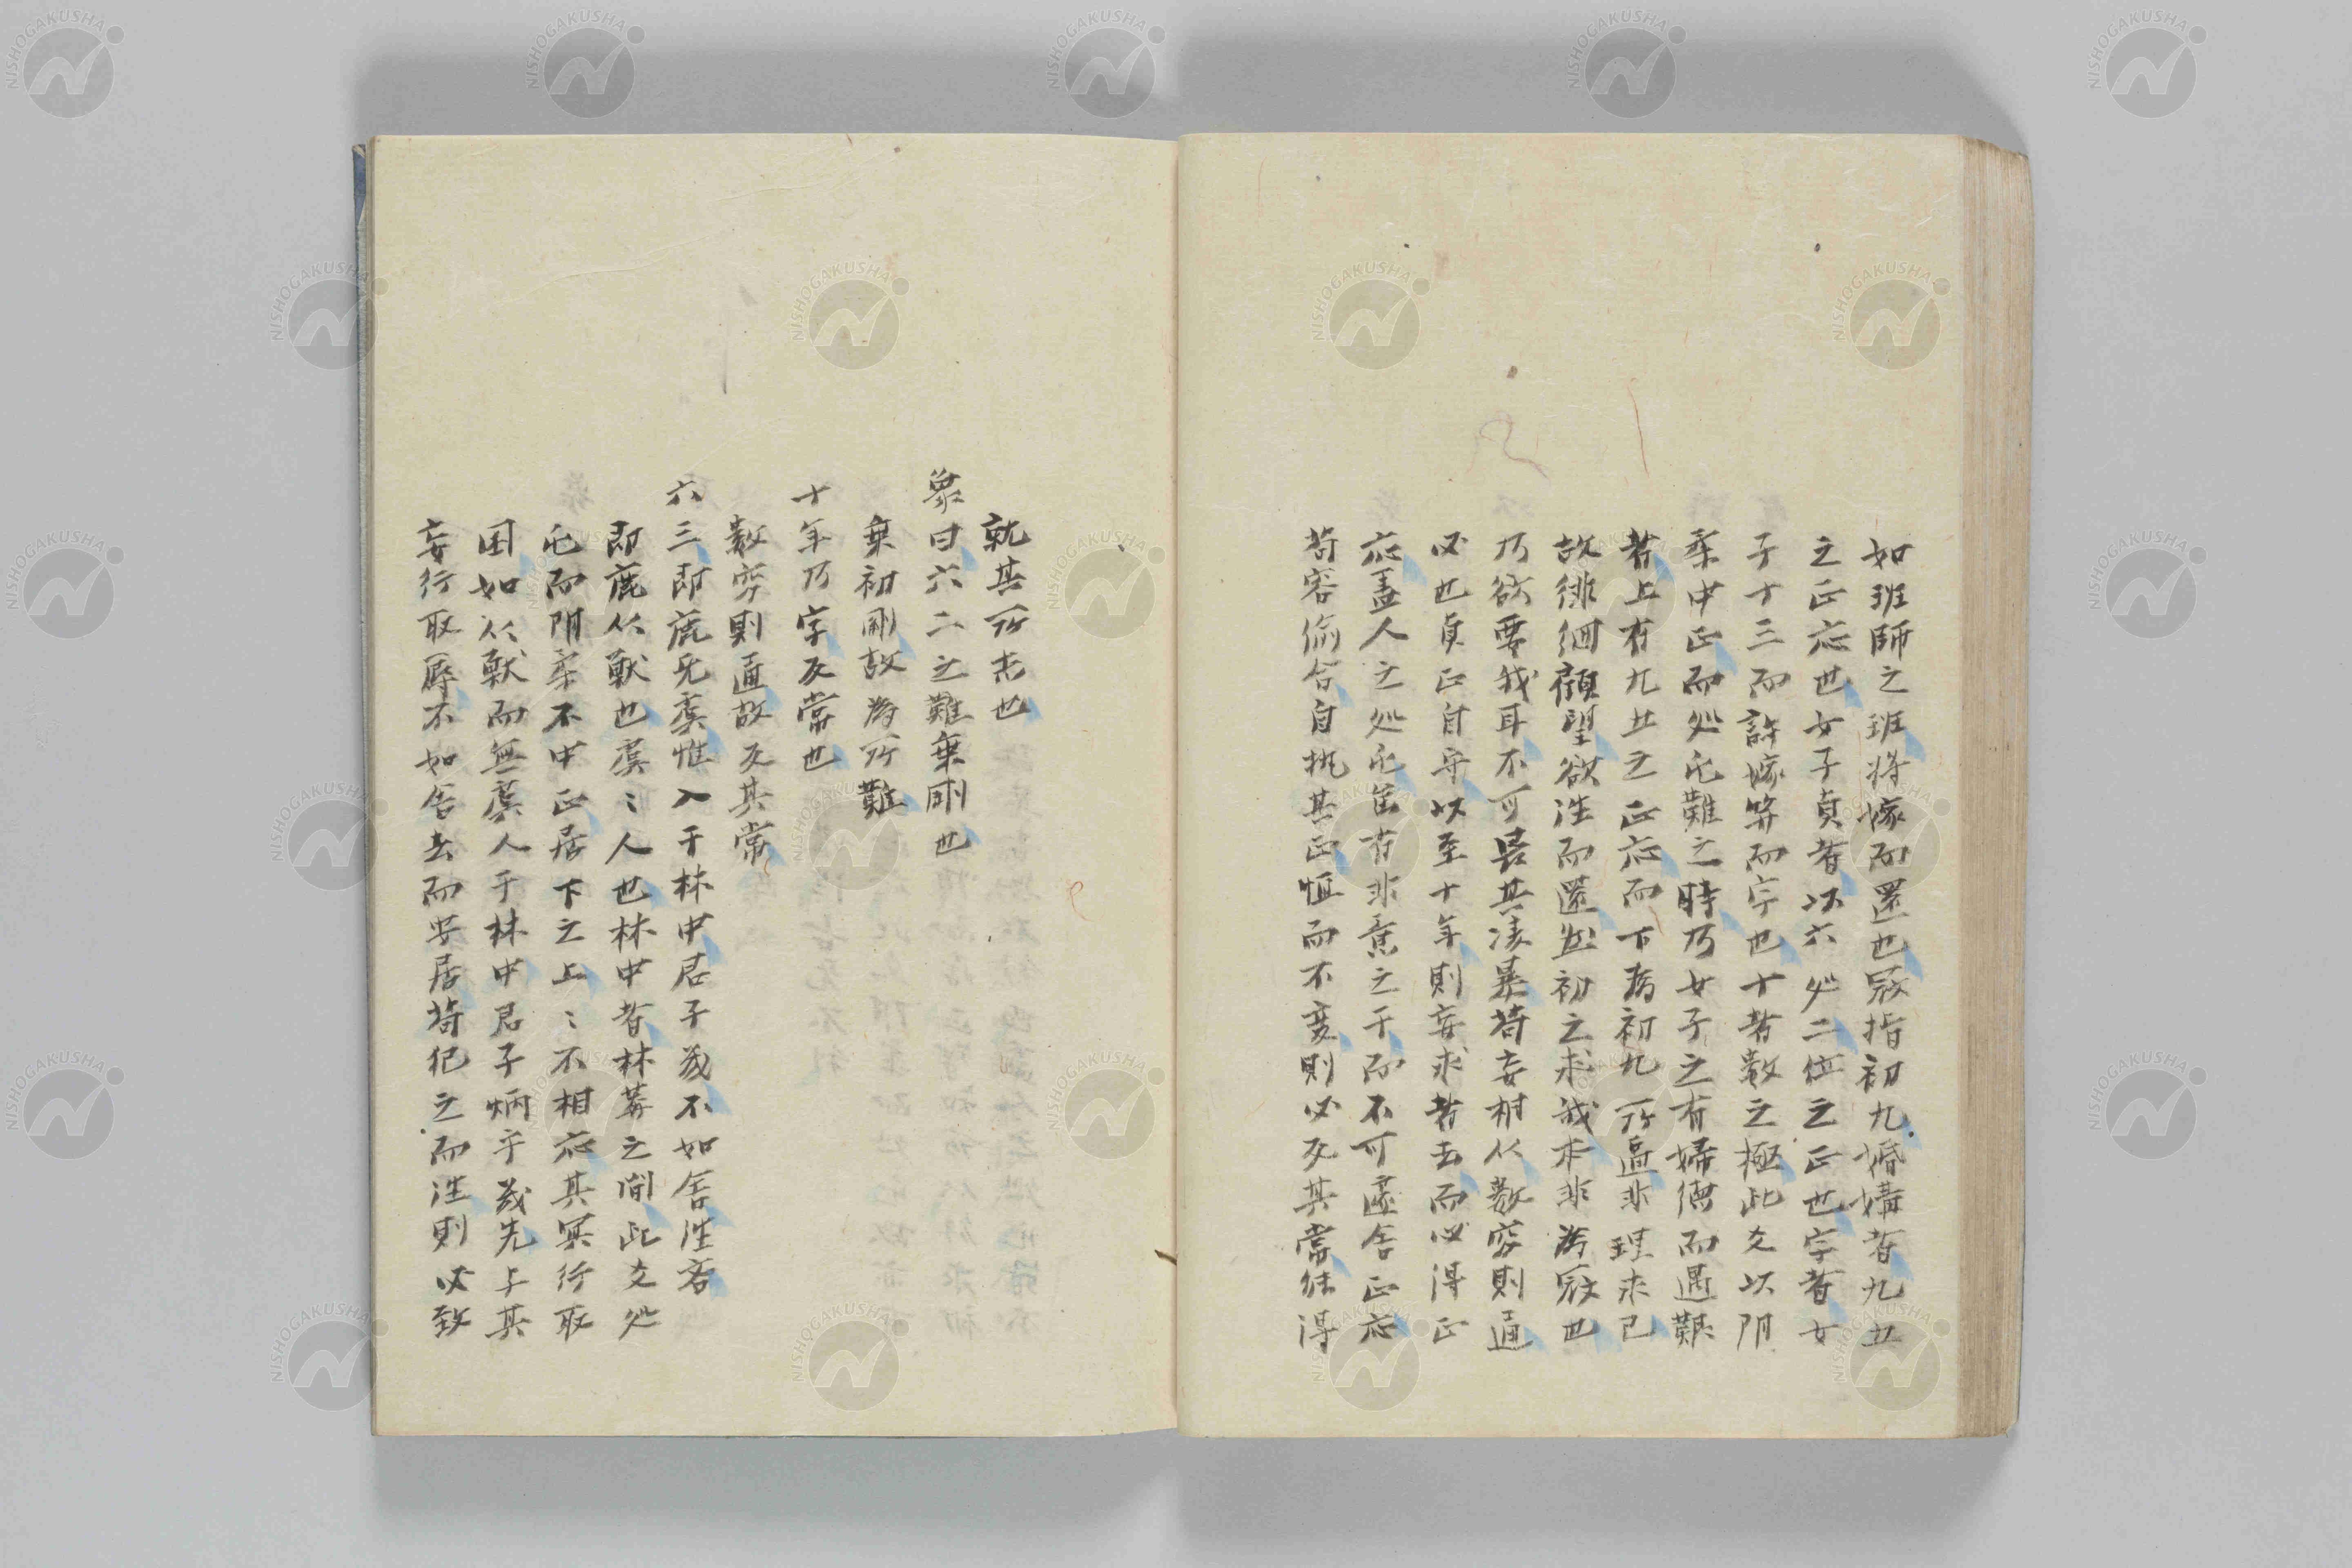 如班師之班将嫁而還也寇指初九婚媾者九五
之正応也女子貞者以六処二位之正也字者女
子十三而許嫁笄而字也十者数之極此爻以阴
柔中正而処屯難之時乃女子之有婦徳而遇艱
者上有九五之正応而下為初九所逼非理求已
故徘徊顧望欲往而還然初之求我本非為寇也
乃欲要我耳不可畏其凌暴苟妄相从数窮則通
必也貞正自守以至十年則妄求者去而必得正
応盖人之処屯固有非意之干而不可遽舍正応
苟容偷合自执其正恒而不変則必反其常往得
就其所志也
象曰六二之難乗剛也
乗初剛故為所難
十年乃字反常也
数窮則通故反其常
六三即鹿无虞惟入于林中君子幾不如舍往吝
即鹿从獣也虞〻人也林中者林莽之间此爻処
屯而阴柔不中正居下之上〻不相応其冥行取
困如从獣而無虞人于林中君子炳乎幾先与其
妄行取辱不如舍去而安居苟犯之而往則必致
NISHOGAKUSHA